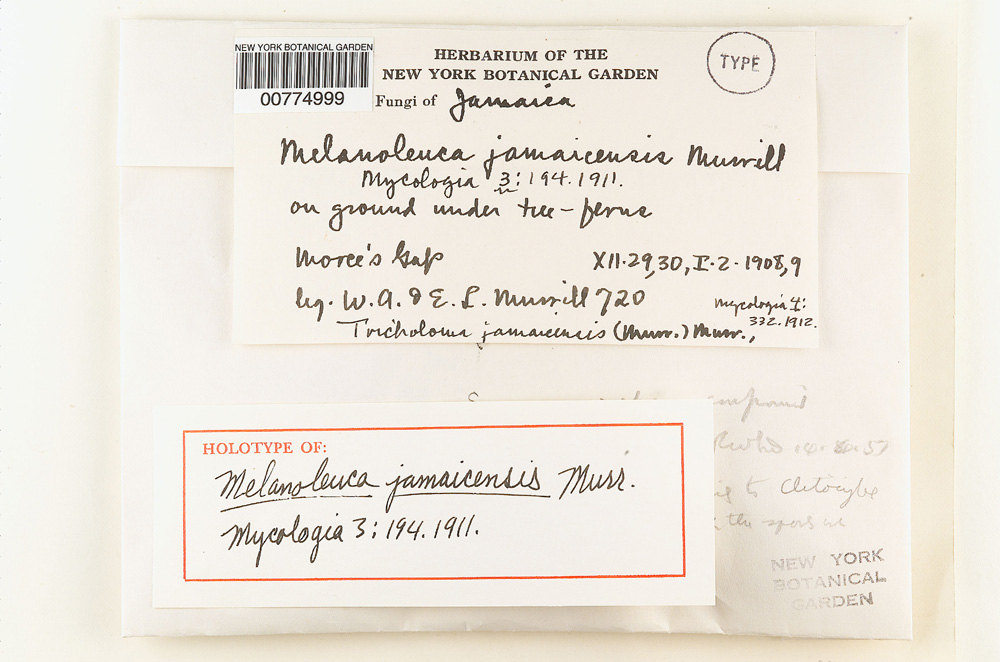 NEW YORK BOTANICAL GARDEN
00774999
HERBARIUM OF THE
NEW YORK BOTANICAL GARDEN
TYPE
Fungi of Jamaica
Melanoleuca jamaicensis Murrill
Mycologia 3: 194. 1911.
on ground under tree-ferns
Morce's Gap XII-29,30, I-2-1908,9
leg. W.A. & E. L. Murrill 720
Mycologia 4:
332. 1912.
Tricholoma jamaicensis (Murr.) Murr.,
HOLOTYPE OF:
Melanoleuca jamaicensis Murr.
Mycologia 3: 194. 1911.
to Clitocybe
the spores
NEW YORK
BOTANICAL
GARDEN